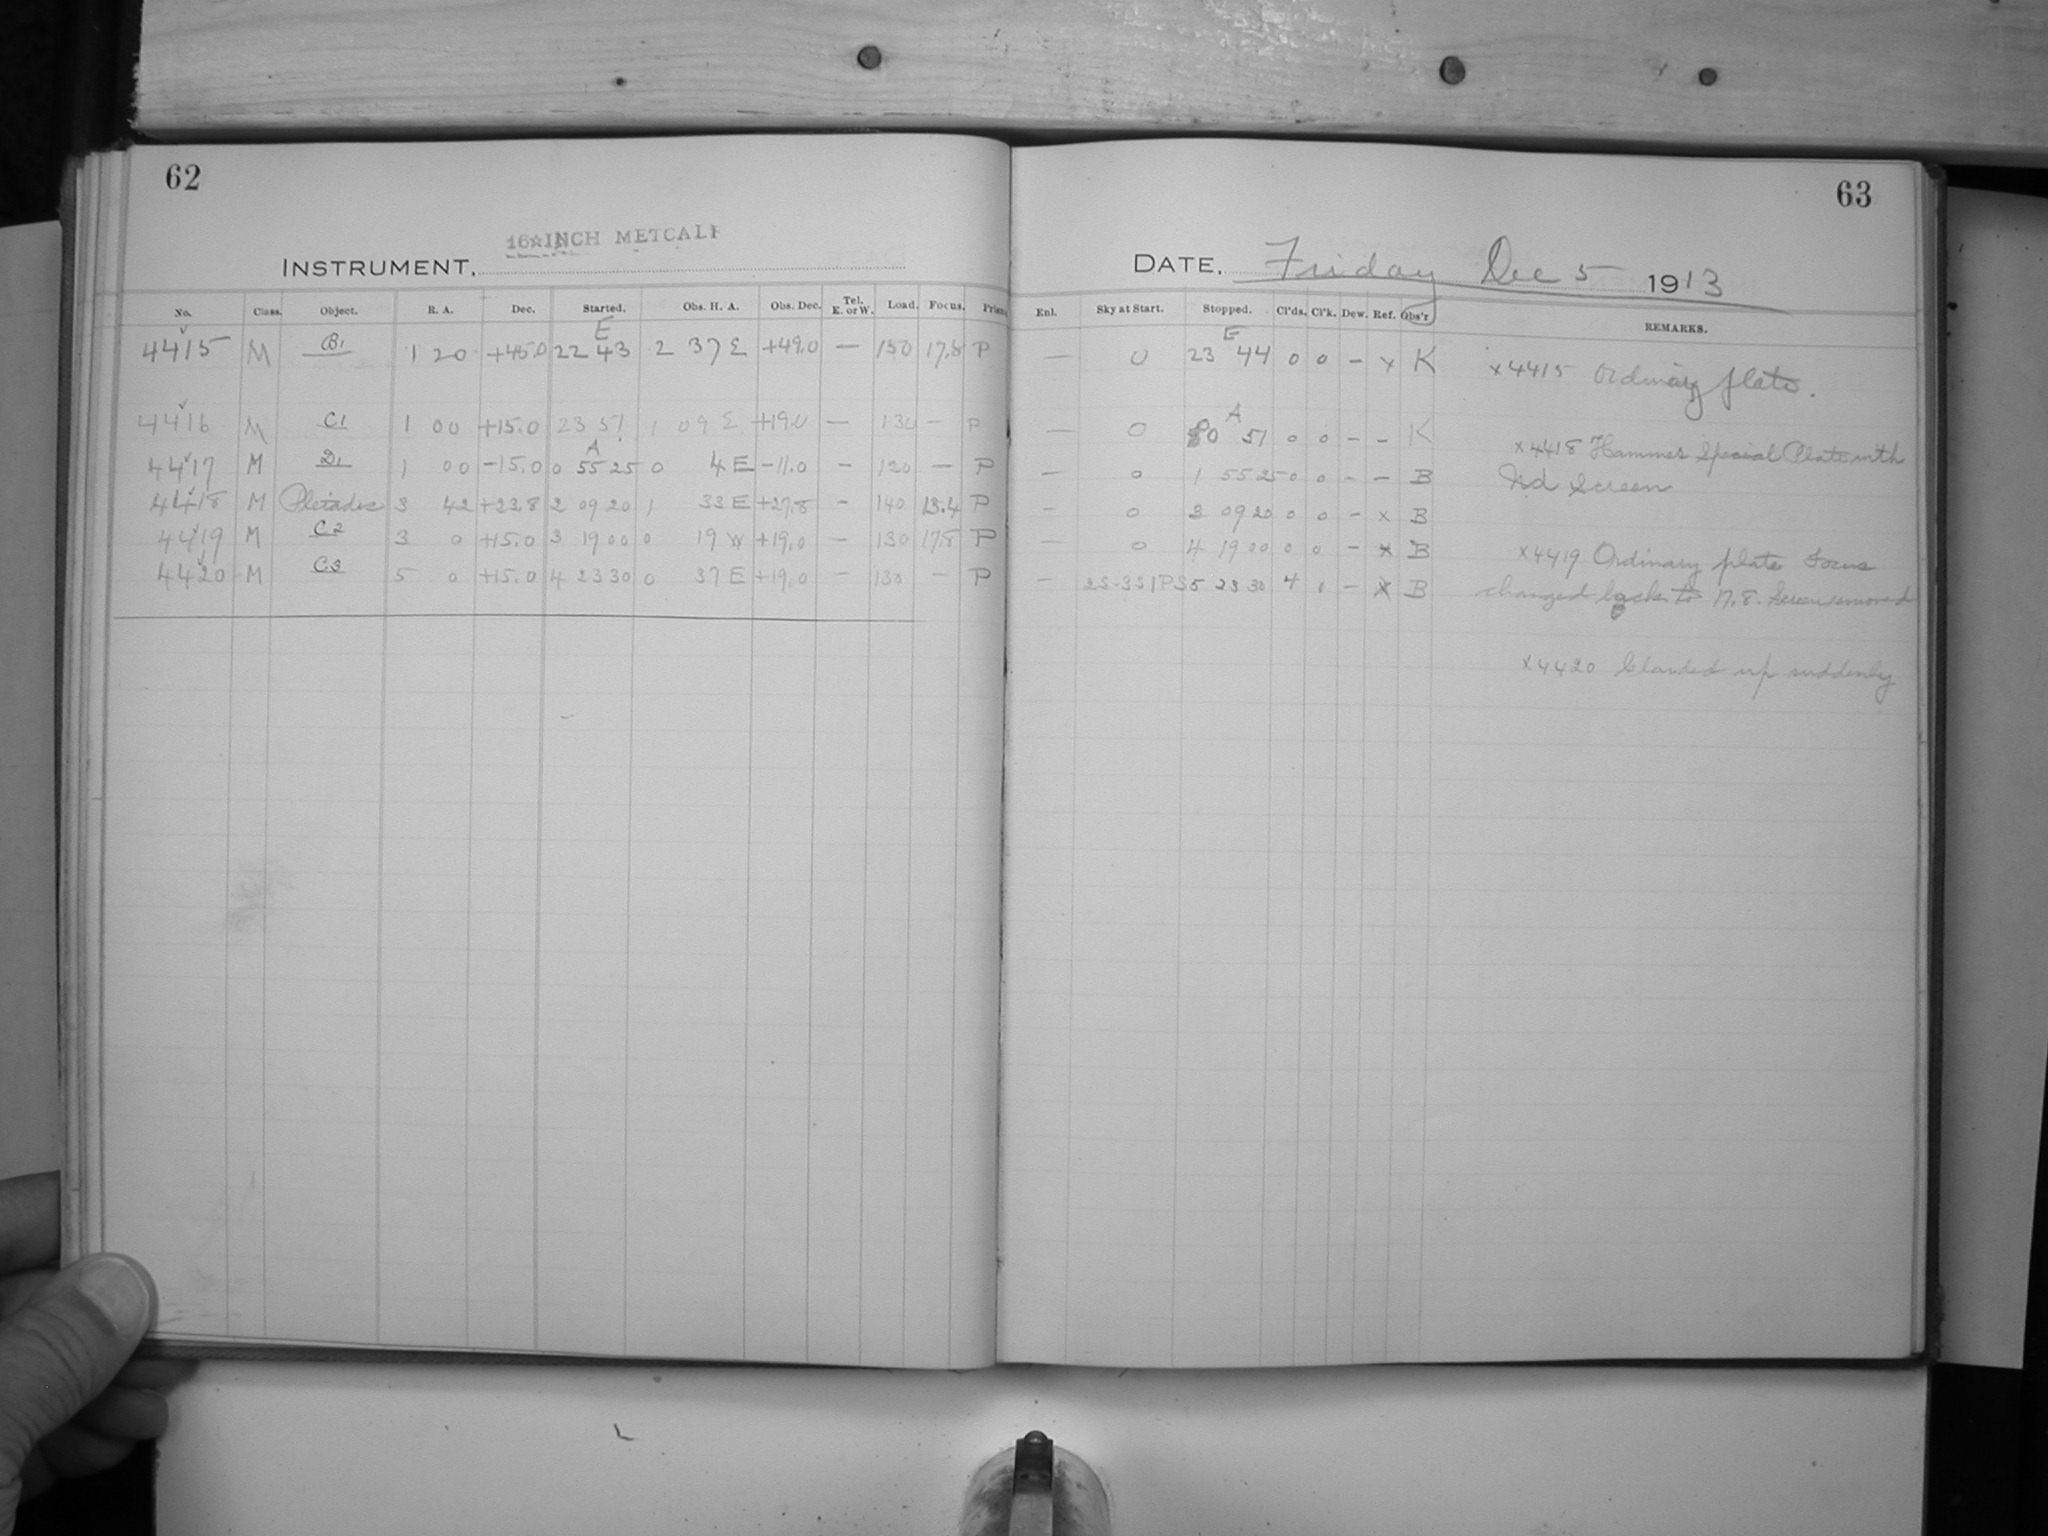 62
16 INCH METCALF
INSTRUMENT,
No. Class. Object. R. A. Dec. Started. Obs. H. A. Obs. Dec. Tel. E. or W. Load. Focus. Prism
4415 M B1 1 20 +45.0 22 E 43 2 37 E +49.0 — 150 17.8 P
4416 M C1 1 00 +15.0 23 51 1 09 E +19.0 — 130 – P
4417 M D1 1 00 -15.0 0 A 55 25 0 4 E -11.0 – 120 — P
4418 M Pleiades 3 42 +23.8 2 09 20 1 33 E +27.8 – 140 13.4 P
4419 M C2 3 0 +15.0 3 19 00 0 19 W +19.0 – 130 17.8 P
4420 M C3 5 0 +15.0 4 23 30 0 37 E +19.0 – 130 – P
63
DATE, Friday Dec 5 1913
Enl. Sky at Start. Stopped. Cl'ds. Cl'k. Dew. Ref. Obs'r REMARKS.
— 0 23 E 44 0 0 – x K x4415 Ordinary plate.
— 0 0 A 51 0 0 – – K
— 0 1 55 25 0 0 – – B x4418 Hammer Special Plate with
– 0 3 09 20 0 0 – x B Screen
— 0 4 19 00 0 0 – x B x4419 Ordinary plate Focus
– 2S-3S1PS 5 23 30 4 0 – x B changed back to 17.8. Screen removed
x4420 Clouded up suddenly